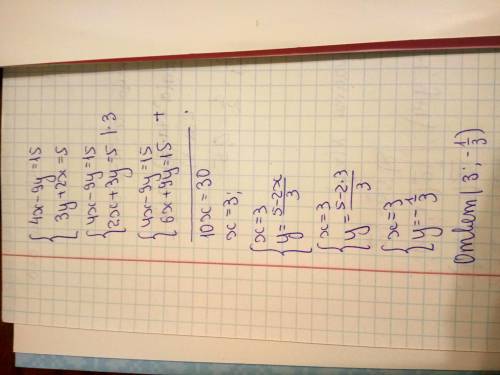 { 4x-9y=15
{ 3y+2x=5
{ 4x-9y=15
{ 2x+3y=5 |·3
{ 4x-9y=15
{ 6x+9y=15 +
10x=30
x=3;
{ x=3
{ y=5-2x/3
{ x=3
{ y=5-2·3/3
{ x=3
{ y=-1/3
Ответ(3;-1/3)